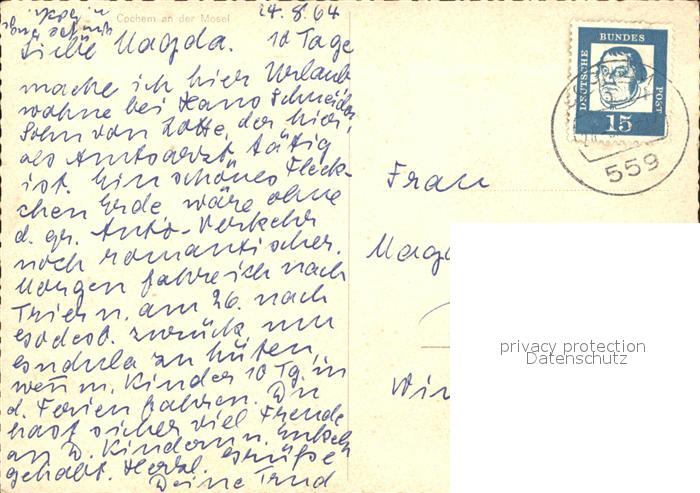 Cochem an der Mosel
24.8.64
Liebe Magda. 10 Tage
mache ich hier Urlaub
wohne bei Hans Schneider
Sohn von Lotte, der hier,
als Amtsarzt tätig
ist. Ein schönes Fleck-
chen Erde wäre ohne
d. gr. Auto-Verkehr
noch romantischer.
Morgen fahre ich nach
Trier u. am 26. nach
zurück um
zu hüten,
wenn m. Kinder 10 Tg. in
d. Ferien fahren. Du
hast sicher viel Freude
an D. Kindern u. Enkeln
gehabt. Herzl. Grüße
Deine Trud
DEUTSCHE BUNDES POST
15
559
Frau
Magd
Win
privacy protection
Datenschutz